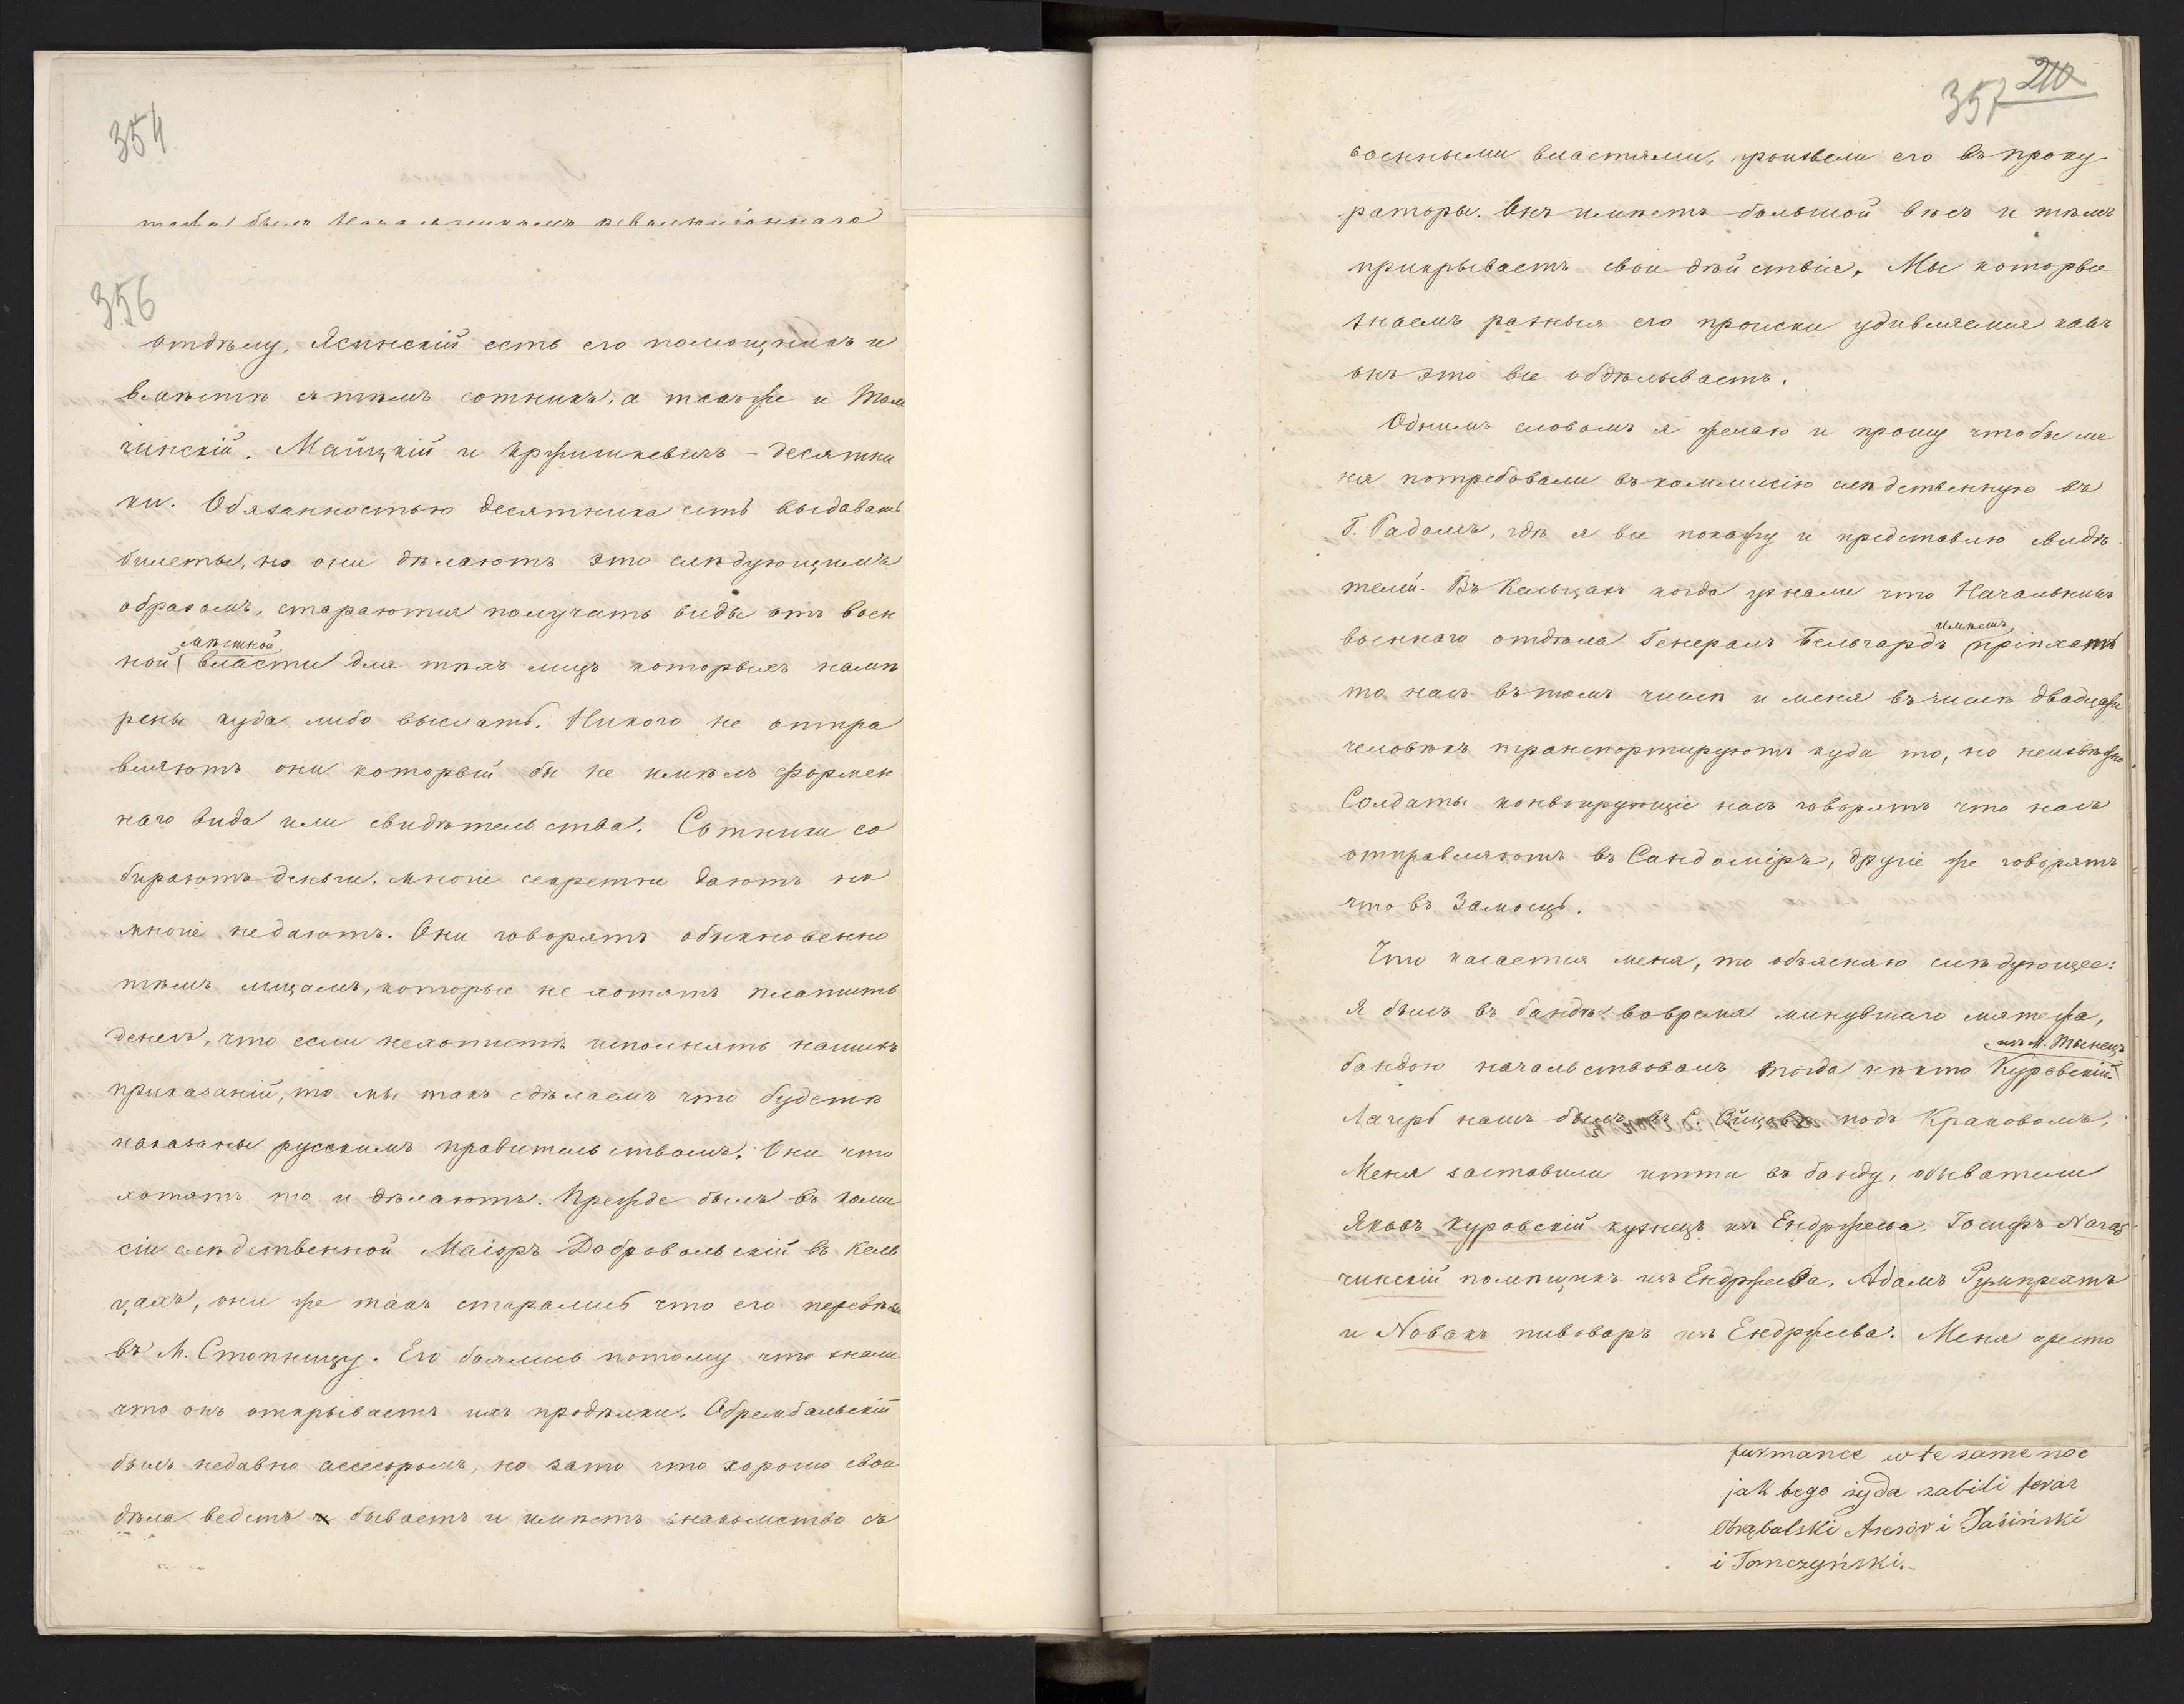 354
356
отдѣлу, Ясинскій есть его помощникъ и
вмѣстѣ съ тѣмъ сотникъ, а также и Том
чинскій. Майцкій и Кржишкевичъ – десятни
ки. Обязанностью десятника есть выдавать
билеты, но они дѣлаютъ это слѣдующимъ
образомъ, стараются получать виды отъ воен
мѣстной
ной власти для тѣхъ лицъ которыхъ намѣ
рены куда либо выслать. Никого не отпра
вляютъ они который бы не имѣлъ формен
наго вида или свидѣтельства. Сотники со
бираютъ деньги, многіе секретно даютъ но
многіе недаютъ. Они говорятъ обыкновенно
тѣмъ лицамъ, которые не хотятъ платить
денегъ, что если нехотите исполнять нашихъ
приказаній, то мы такъ сдѣлаемъ что будете
наказаны русскимъ правительствомъ. Они что
хотятъ то и дѣлаютъ. Прежде былъ въ коми
сіи слѣдственной Маіоръ Добровольскій въ Кель
цахъ, они же такъ старались что его перевели
въ М. Стопницу. Его боялись потому что знали
что онъ открываетъ ихъ продѣлки. Обрембальскій
былъ недавно ассесоромъ, но зато что хорошо свои
дѣла ведетъ бываетъ и имѣетъ знакомство съ
357 210
военными властями, произвели его въ проку-
раторы. Онъ имѣетъ большой вѣсъ и тѣмъ
прикрываетъ свои дѣйствія. Мы которые
знаемъ разныя его происки удивляемся какъ
онъ это все обдѣлываетъ.
Однимъ словомъ я желаю и прошу чтобы ме
ня потребовали въ коммисію слѣдственную въ
Г. Радомъ, гдѣ я все покажу и представлю свидѣ
телей. Въ Кельцахъ когда узнали что Начальникъ
имѣетъ
военнаго отдѣла Генералъ Бельгардъ пріѣхать
то насъ въ томъ числѣ и меня въ числѣ двадцати
человѣкъ транспортируютъ куда то, но неизвѣстно
Солдаты конвоирующіе насъ говорятъ что насъ
отправляютъ въ Сандоміръ, другіе же говорятъ
что въ Замосць.
Что касается меня, то объясняю слѣдующее:
Я былъ въ бандѣ вовремя минувшаго мятежа,
изъ М. Тынецъ
бандою начальствовалъ тогда нѣкто Куровскій.
Лагерь нашъ былъ въ С. Ойцовъ подъ Краковомъ,
Меня заставили итти въ банду, обыватели
Яковъ Куровскій кузнецъ изъ Ендржеева, Іосифъ
чинскій помѣщикъ изъ Ендржеева, Адамъ
и Новакъ пивоваръ изъ Ендржеева. Меня аресто
furmance w te same noc
jak tego żyda zabili teraz
Obrąbalski Asesor i Jasiński
i Tomczyński.-